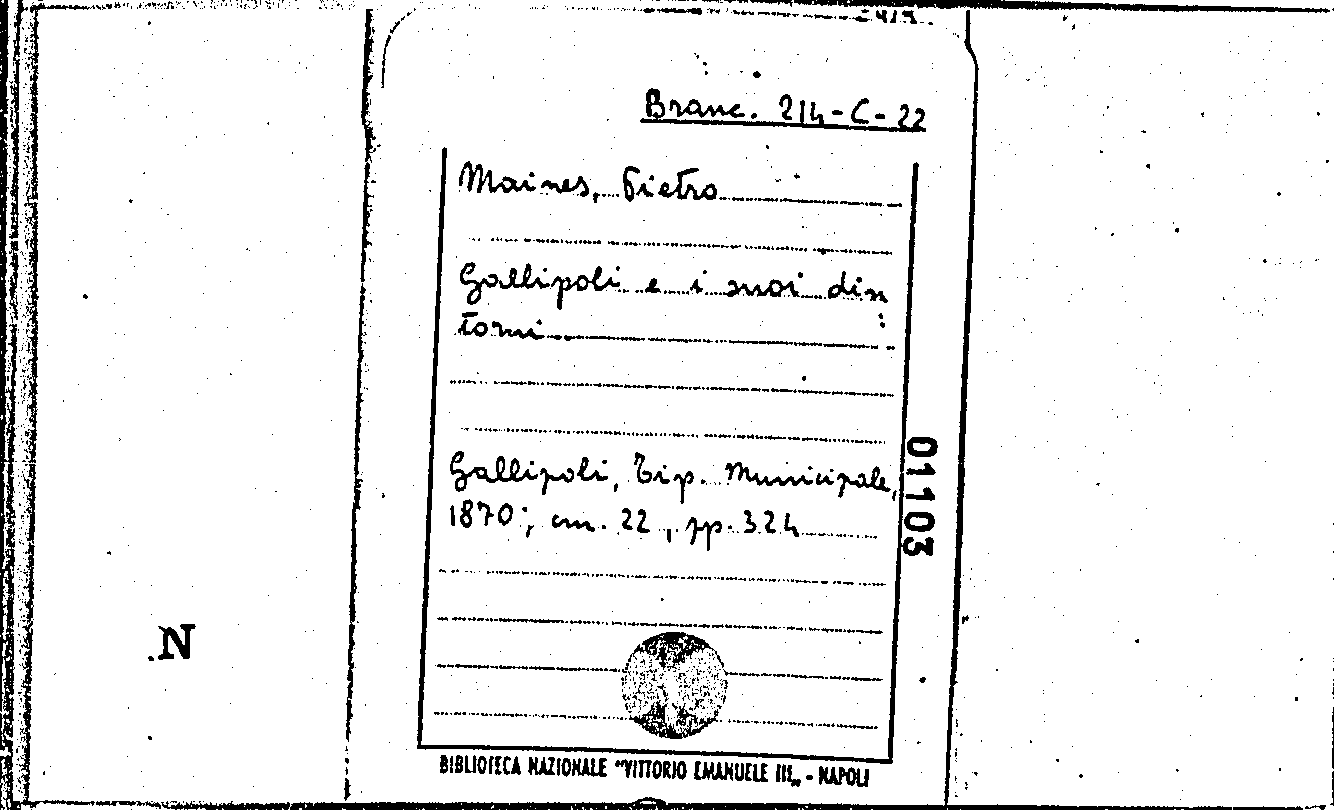 Branc. 214-C-22
Maines, Pietro
Gallipoli e i suoi din
torni
Gallipoli, Tip. Municipale,
1870; cm. 22, pp. 324
01103
N
BIBLIOTECA NAZIONALE "VITTORIO EMANUELE III„ - NAPOLI